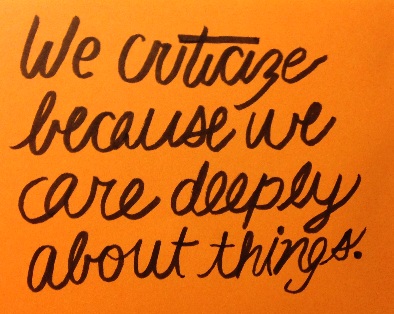 We criticize
because we
care deeply
about things.